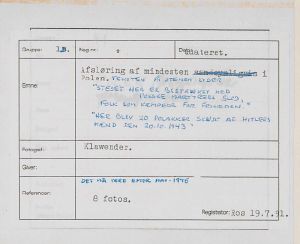 Gruppe: 1B. Neg.nr: Dato: udateret.
Emne: Afsløring af mindesten i
Polen. TEKSTEN PÅ STENEN LYDER
"STEDET HER ER BESTÆNKET MED
POLSKE MARTYRERS BLOD,
FOLK SOM KÆMPEDE FOR FRIHEDEN."
"HER BLEV 20 POLAKKER SKUDT AF HITLERS
MÆND DEN 20.10.1943"
Fotograf: Klawender.
Giver:
DET MÅ VÆRE EFTER MAJ 1945
Referencer:
8 fotos.
Registrator: Ros 19.7.91.